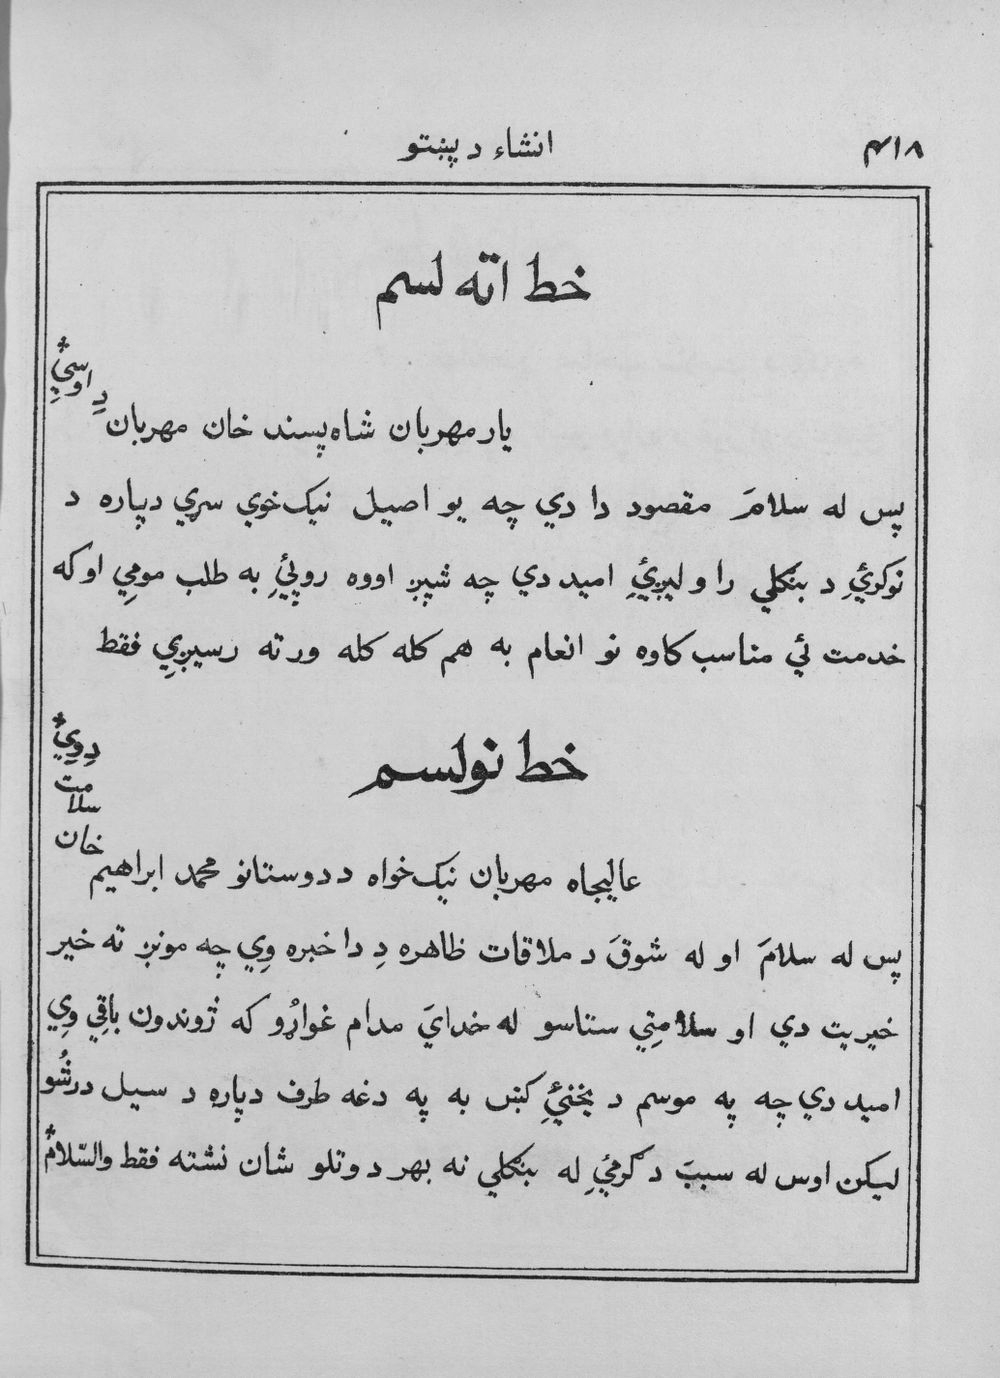 ۴۱۸
انشاء د پښتو
خط اته لسم
یار مهربان شاه پسند خان مهربان دِ اوسئِ
پس له سلامَ مقصود دا دي چه یو اصیل نیک خوي سړي دپاره د
نوکرۍِ د بنګلي را ولیږۍِ امید دي چه شپږ اووه روپۍِ به طلب مومِي او که
خدمت ئي مناسب کاوه نو انعام به هم کله کله ورته رسیږِي فقط
خط نولسم
عالیجاه مهربان نیک خواه د دوستانو محمد ابراهیم خان سلامت دِ وئِ
پس له سلامَ او له شوقَ د ملاقات ظاهره دِ دا خبره وِي چه مونږ ته خیر
خیریت دي او سلامتِي ستاسو له خدايَ مدام غواړُو که ژوندون باقِي وِي
امید دي چه په موسم د یخنۍِ کښ به په دغه طرف دپاره د سیل درشُو
لیکن اوس له سببَ د ګرمۍِ له بنګلي نه بهر د وتلو شان نشته فقط والسّلام